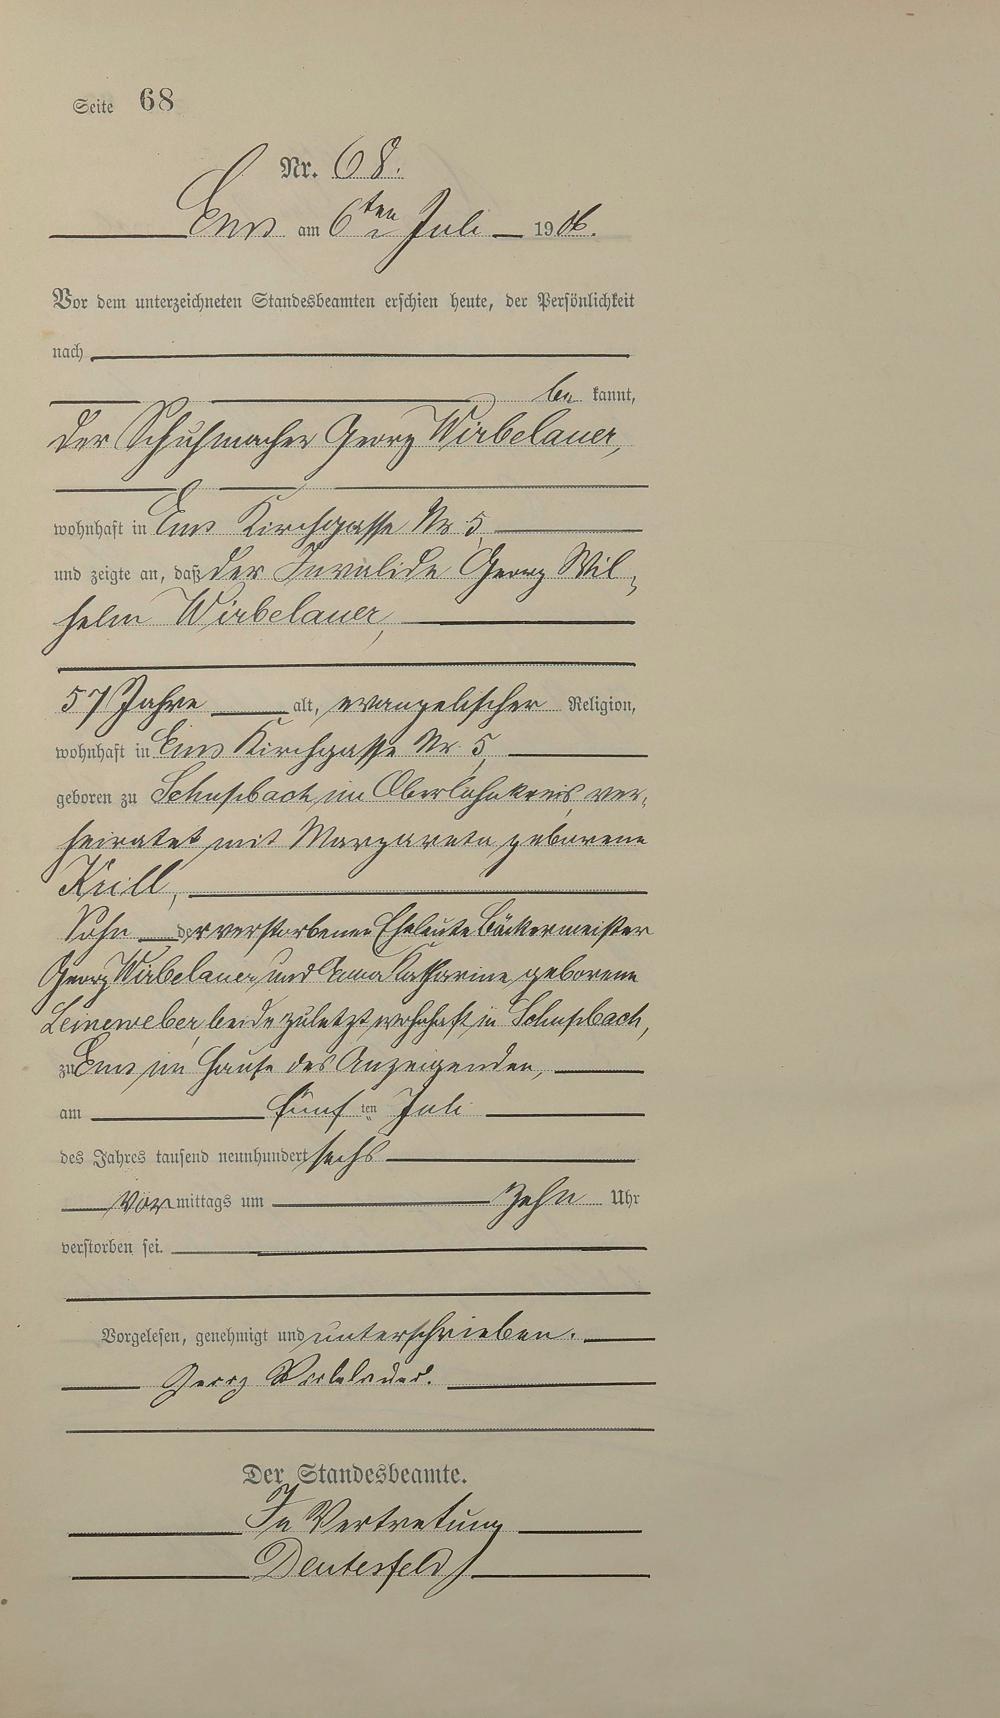 Seite 68
Nr. 68.
Ems am 6ten Juli 1906.
Vor dem unterzeichneten Standesbeamten erschien heute, der Persönlichkeit
nach
be kannt,
der Schuhmacher Georg Wirbelauer,
wohnhaft in Ems Kirchgasse Nr 5,
und zeigte an, daß der Invalide Georg Wil-
helm Wirbelauer,
57 Jahre alt, evangelischer Religion,
wohnhaft in Ems Kirchgasse Nr. 5,
geboren zu Schupbach im Oberlahnkreis ver-
heiratet mit Margareta geborene
Krill,
Sohn der verstorbenen Eheleute Bäckermeister
Georg Wirbelauer und Anna Katharine geborene
Leineweber, beide zuletzt wohnhaft in Schupbach,
zu Ems im Hause des Anzeigenden,
am fünf ten Juli
des Jahres tausend neunhundert sechs
Vor mittags um zehn Uhr
verstorben sei.
Vorgelesen, genehmigt und unterschrieben.
Georg Wirbelauer.
Der Standesbeamte.
In Vertretung